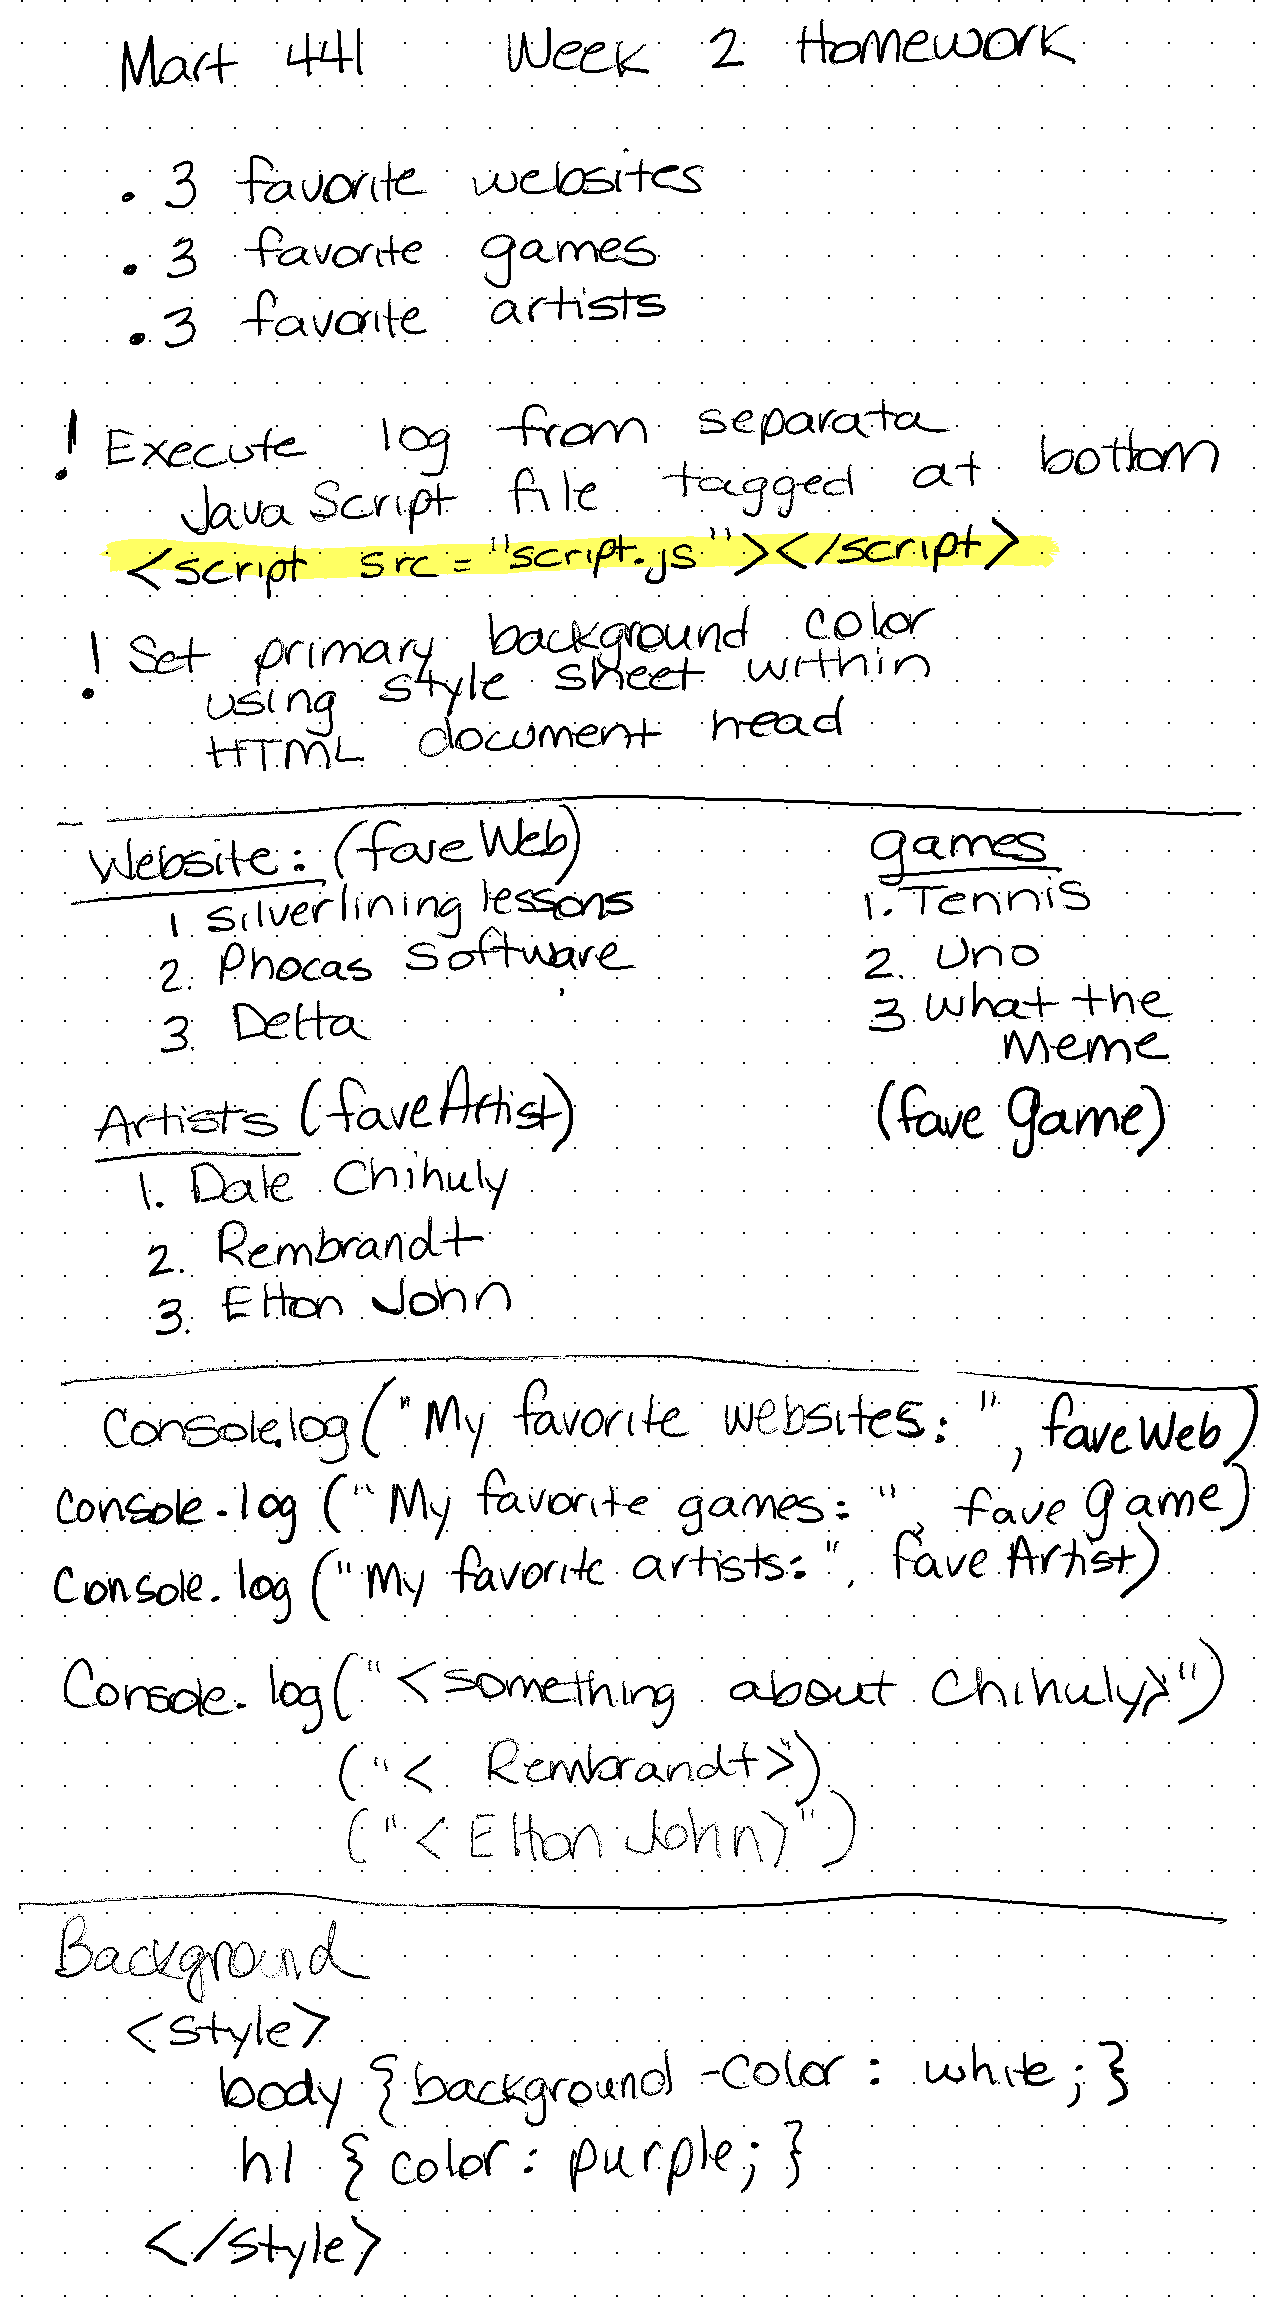 Mart 441 Week 2 Homework
. 3 favorite websites
. 3 favorite games
. 3 favorite artists
! Execute log from separata
JavaScript file tagged at bottom
<script src = "script.js"></script>
! Set primary background color
using style sheet within
HTML document head
Website: (faveWeb)
1 Silverlining lessons
2. Phocas Software
3. Delta
games
1. Tennis
2. Uno
3. What the
Meme
(fave game)
Artists (faveArtist)
1. Dale Chihuly
2. Rembrandt
3. Elton John
Console.log("My favorite websites: ", faveWeb)
Console.log ("My favorite games: ", fave game)
Console.log ("My favorite artists: ", fave Artist)
Console.log("<something about Chihuly>")
("< Rembrandt>")
("<Elton John>")
Background
<style>
body {background-color: white;}
h1 {color: purple;}
</style>